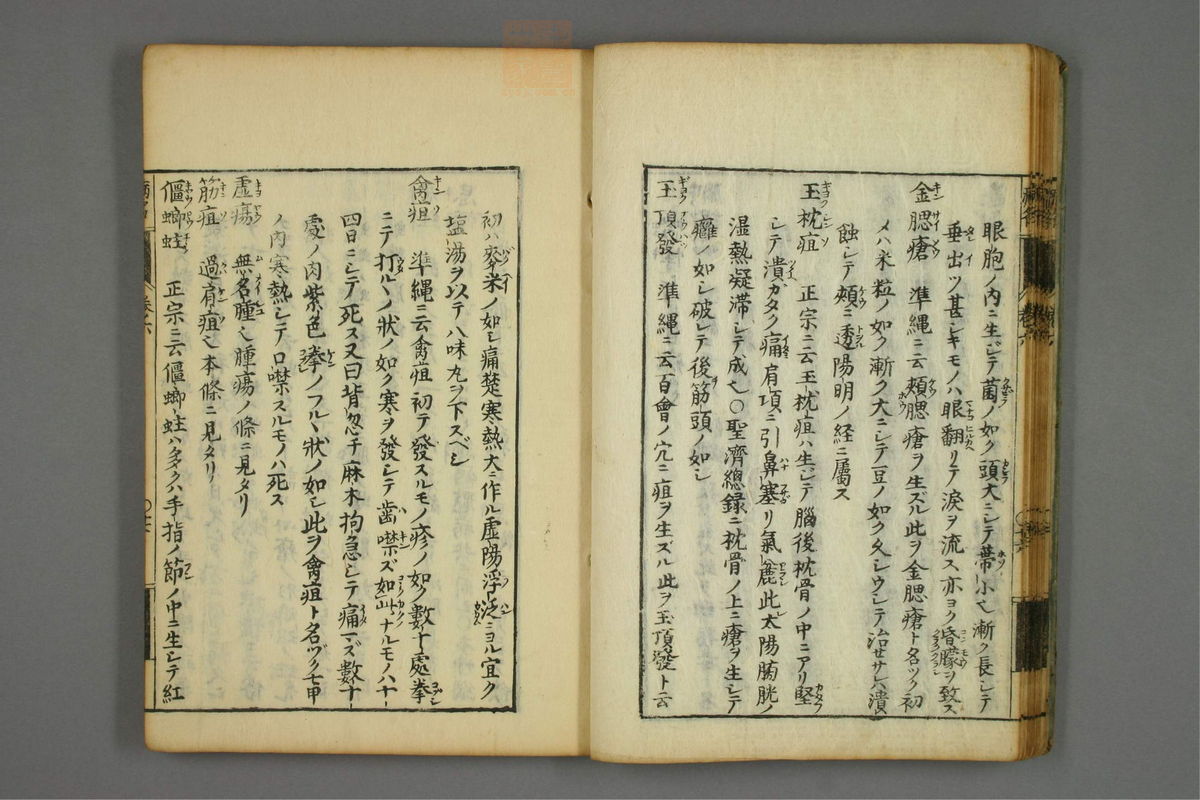 眼胞ノ内ニ生ジテ菌ノ如ク頭大ニシテ蒂小也漸ク長シテ
垂出ツ甚シキモノハ眼翻リテ淚ヲ流ス亦ヨク昏朦ヲ致ス
金腮瘡 準繩ニ云頰腮瘡ヲ生ズル此ヲ金腮瘡ト名ヅク初
メハ米粒ノ如ク漸ク大ニシテ豆ノ如ク久シウシテ治セサレハ潰
蝕シテ頰ニ透陽明ノ経ニ屬ス
玉枕疽 正宗ニ云玉枕疽ハ生ジテ腦後枕骨ノ中ニアリ堅
シテ潰ガタク痛肩項ニ引鼻塞リ氣麁此太陽膀胱ノ
湿熱凝滞シテ成也〇聖濟總錄ニ枕骨ノ上ニ瘡ヲ生シテ
癰ノ如シ破レテ後筋頭ノ如シ
玉頂發 準繩ニ云百會ノ穴ニ疽ヲ生ズル此ヲ玉頂發ト云
初ハ麥米ノ如シ痛楚寒熱大ニ作ル虚陽浮泛ニヨル宜ク
塩湯ヲ以テ八味丸ヲ下スベシ
禽疽 準繩ニ云禽疽初テ發スルモノ疹ノ如ク數十處拳
ニテ打ルヽノ狀ノ如ク寒ヲ發シテ齒噤ズ如此ナルモノハ十
四日ニシテ死ス又曰背忽チ麻木拘急シテ痛マズ數十
處ノ肉紫色拳ノフルヽ狀ノ如シ此ヲ禽疽ト名ヅク七甲
ノ内寒熱シテ口噤スルモノハ死ス
虚瘍 無名腫也腫瘍ノ條ニ見タリ
筋疽 過肩疽也本條ニ見タリ
傴螂蛀 正宗ニ云傴螂蛀ハ多クハ手指ノ節ノ中ニ生シテ紅